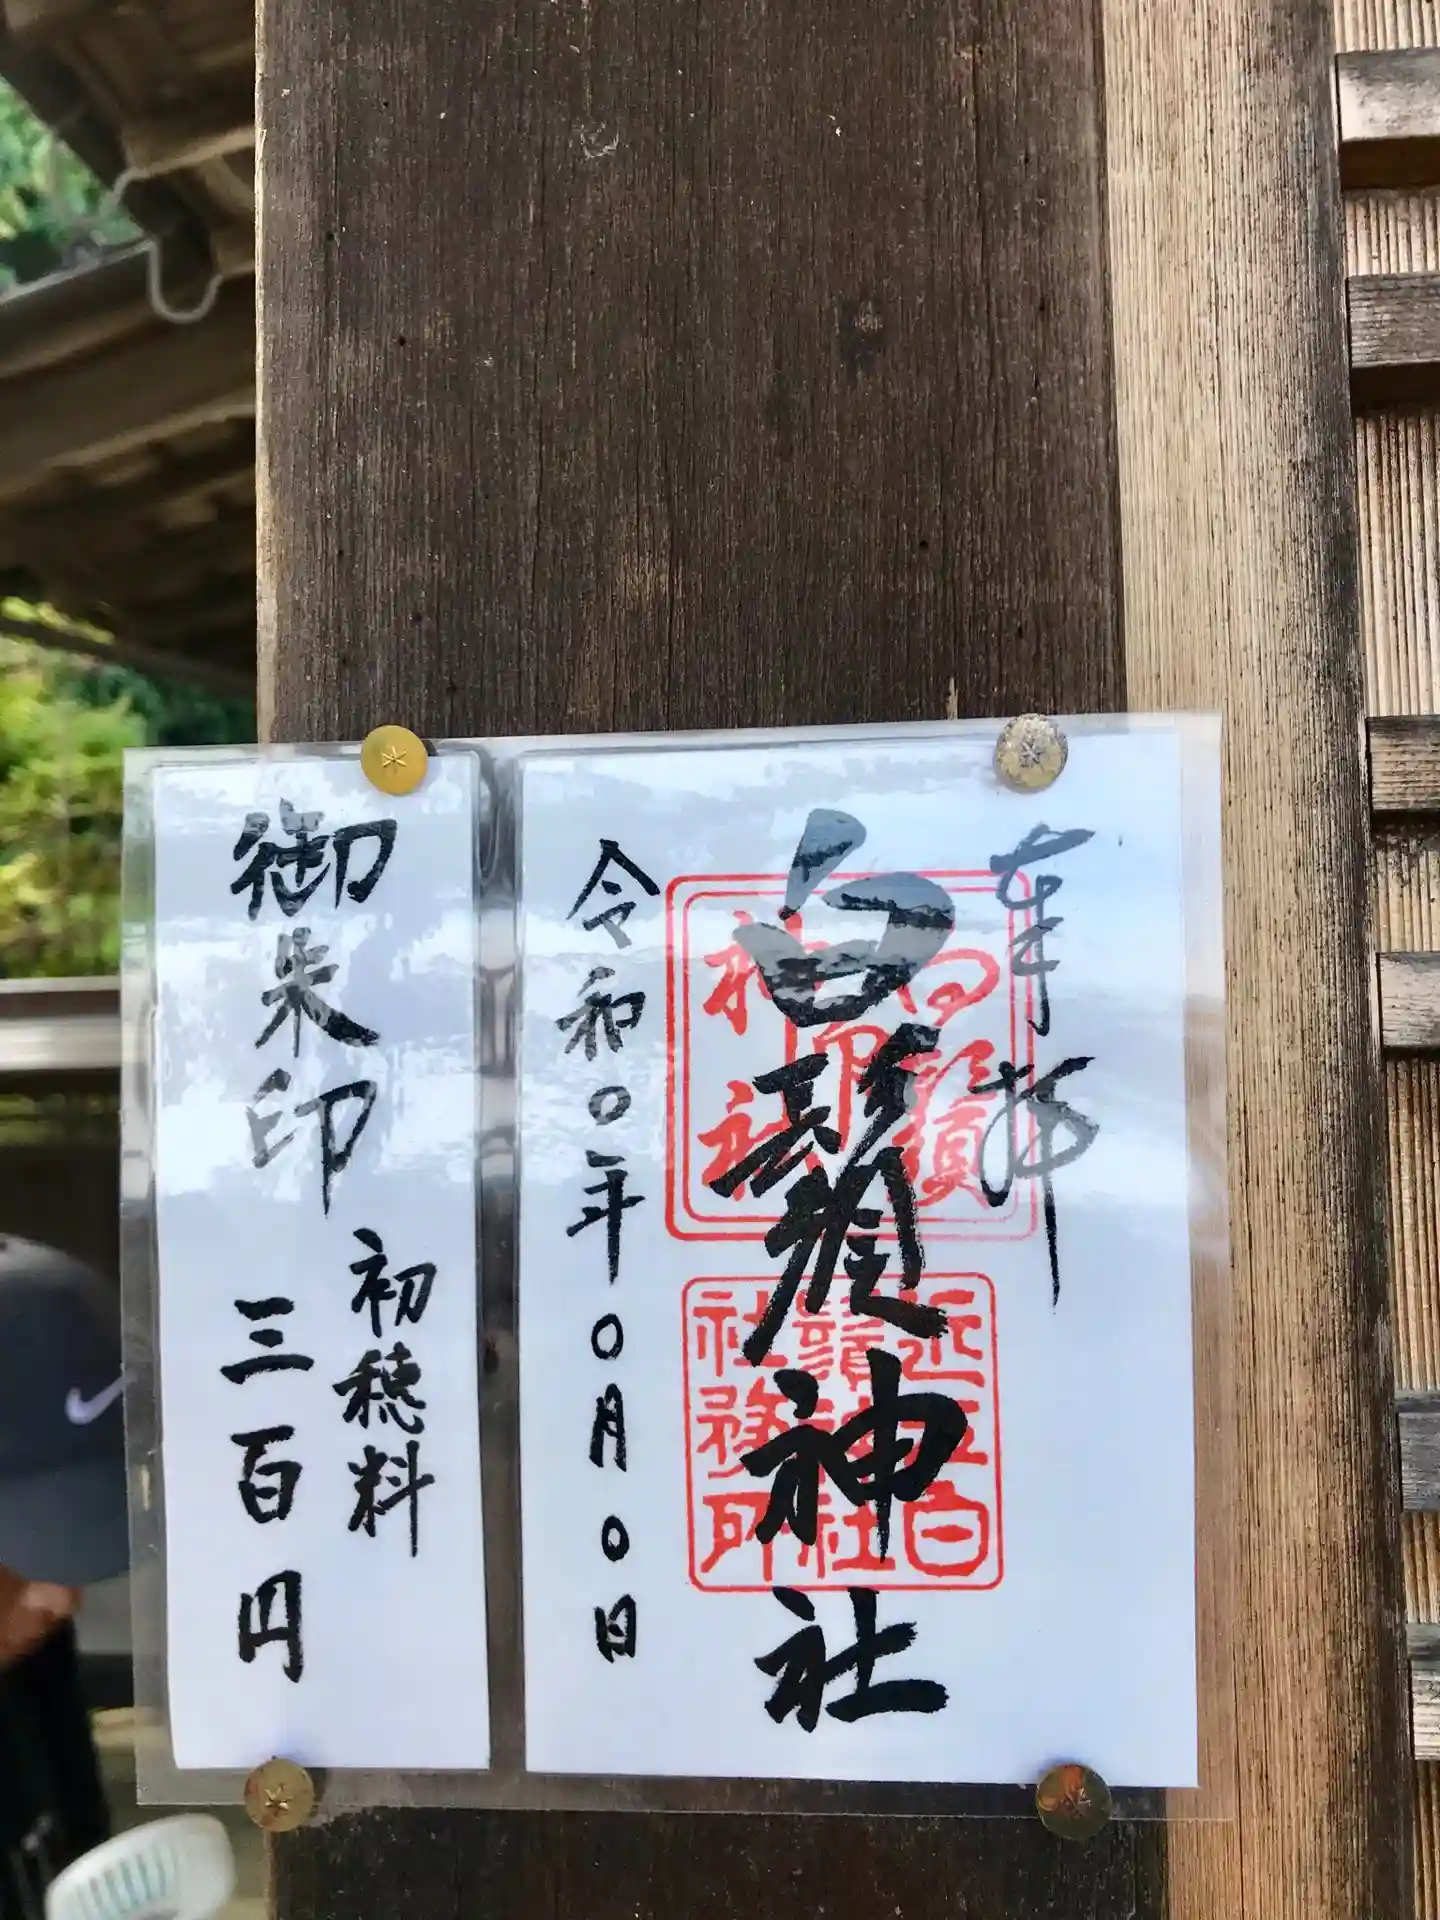 奉拝
白鬚神社
令和〇年〇月〇日
白鬚
神社
近江白
鬚神社
社務所
御朱印
初穂料
三百円